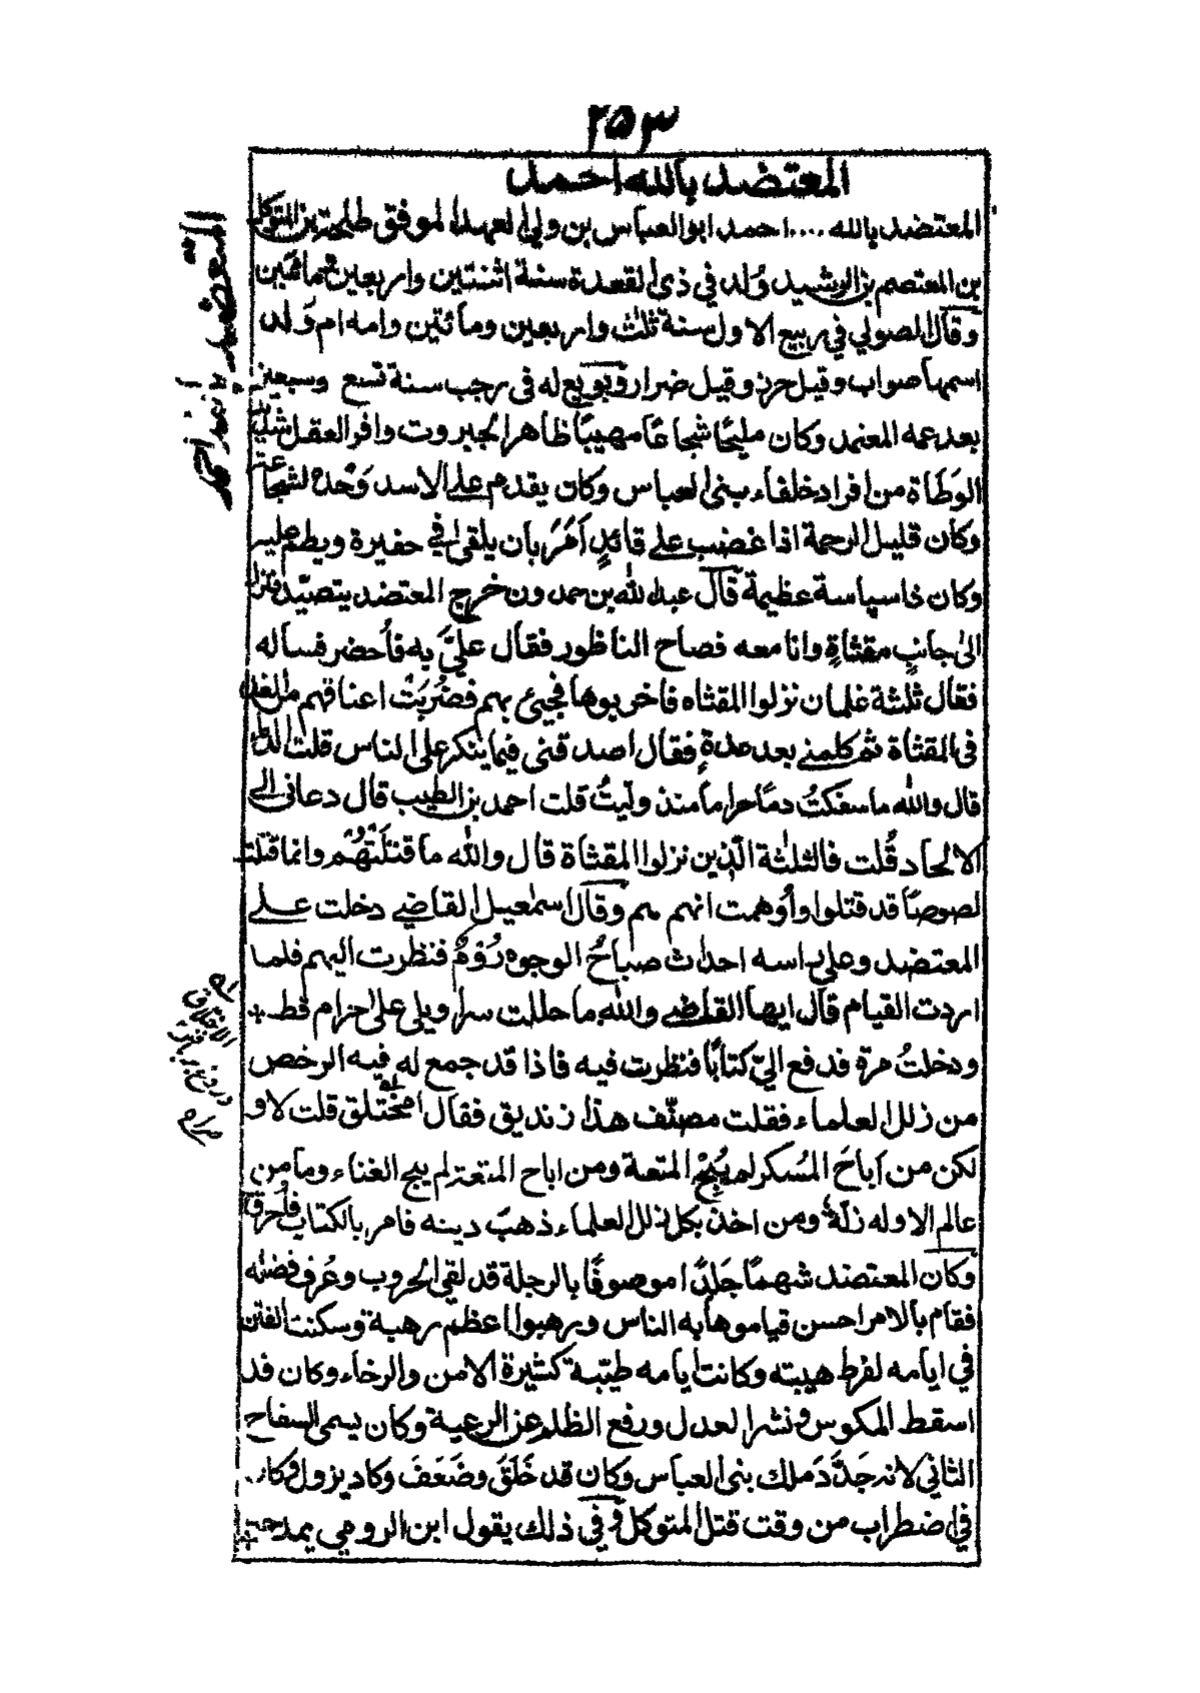 ٢٥٣
المعتضد بالله احمد
المعتضد بالله .... احمد ابو العباس بن ولي العهد الموفق طلحة بن المتوكل
بن المعتصم بن الرشيد وُلد في ذي القعدة سنة اثنتين واربعين ومائتين
وقال الصولي في ربيع الاول سنة ثلث واربعين ومأتين وامه ام وَلد
اسمها صواب وقيل حرز وقيل ضرار وبويع له في رجب سنة تسع وسبعين
بعد عمه المعتمد وكان مليحًا شجاعًا مهيبًا ظاهر الجبروت وافر العقل شديد
الوَطأة من افراد خلفاء بني العباس وكان يقدم على الاسد وَحْدهُ لشجاعته
وكان قليل الرحمة اذا غضب على قائدٍ اَمَرَ بان يلقى في حفيرة ويطم عليه
وكان ذا سياسة عظيمة قال عبد الله بن حمدون خرج المعتضد يتصيّد فنزل
الى جانب مقثاةٍ وانا معه فصاح الناظور فقال عليَّ به فأُحضر فساله
فقال ثلثة غلمان نزلوا المقثاه فاخربوها فجيئ بهم فضُرِبَتْ اعناقهم من الغد
في المقثاة ثم كلمني بعد مدةٍ فقال اصدقني فيما ينكر على الناس قلت الدماء
قال والله ما سفكتُ دمًا حراما منذ وليتُ قلت احمد بن الطيب قال دعاني الى
الالحاد قُلت فالثلثة الّذين نزلوا المقثاة قال والله ما قتلتهُم وانما قتلت
لصوصًا قد قتلوا وأوهمت انهم هم وقال اسمعيل القاضي دخلت على
المعتضد وعلى راسه احداث صباحُ الوجوه رُوْمٌ فنظرت اليهم فلما
اردت القيام قال ايها القاضي والله ما حللت سراويلي على حرام قط
ودخلتُ مرة فدفع اليّ كتابًا فنظرت فيه فاذا قد جمع له فيه الرخص
من زلل العلماء فقلت مصنّف هذا زنديق فقال امختلق قلت لا و
لكن من اَباحَ المُسكر لم يُبِحْ المتعة ومن اباح المتعة لم يبح الغناء وما من
عالم الا وله زلّة ومن اخذ بكل زلل العلماء ذهبَ دينه فامر بالكتاب فاُحرق
وكان المعتضد شهمًا جَلدًا موصوفًا بالرجلة قد لقي الحروب وعُرف فضله
فقام بالامر احسن قيام وهابه الناس ورهبوا اعظم رهبة وسكنت الفتن
في ايامه لفرط هيبته وكانت ايامه طيّبة كثيرة الامن والرخاء وكان قد
اسقط المكوس ونشر العدل ورفع الظلم عن الرعية وكان يسمى السفاح
الثاني لانه جَدَّدَ ملك بني العباس وكان قد خَلَقَ وضَعَفَ وكاد يزول وكان
في اضطراب من وقت قتل المتوكل وفي ذلك يقول ابن الرومي يمدحه
المعتضد بالله احمد